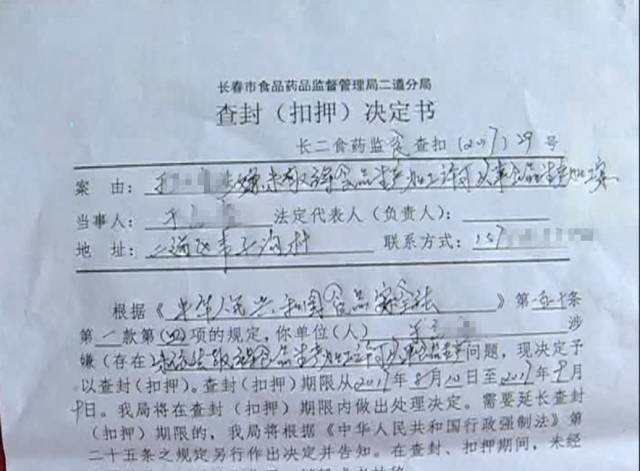 长春市食品药品监督管理局二道分局
查封（扣押）决定书
长二食药监食查扣（2017）29号
案由：涉嫌未取得食品生产加工许可从事食品生产加工案
当事人： 法定代表人（负责人）：
地址：二道区 村 联系方式：157
根据《中华人民共和国食品安全法》第一百一十条
第一款第（四）项的规定，你单位（人） 涉
嫌（存在）未依法取得食品生产加工许可从事食品生产问题，现决定予
以查封（扣押）。查封（扣押）期限从2017年8月10日至2017年9月
9日。我局将在查封（扣押）期限内做出处理决定。需要延长查封
（扣押）期限的，我局将根据《中华人民共和国行政强制法》第
二十五条之规定另行作出决定并告知。在查封、扣押期间，未经